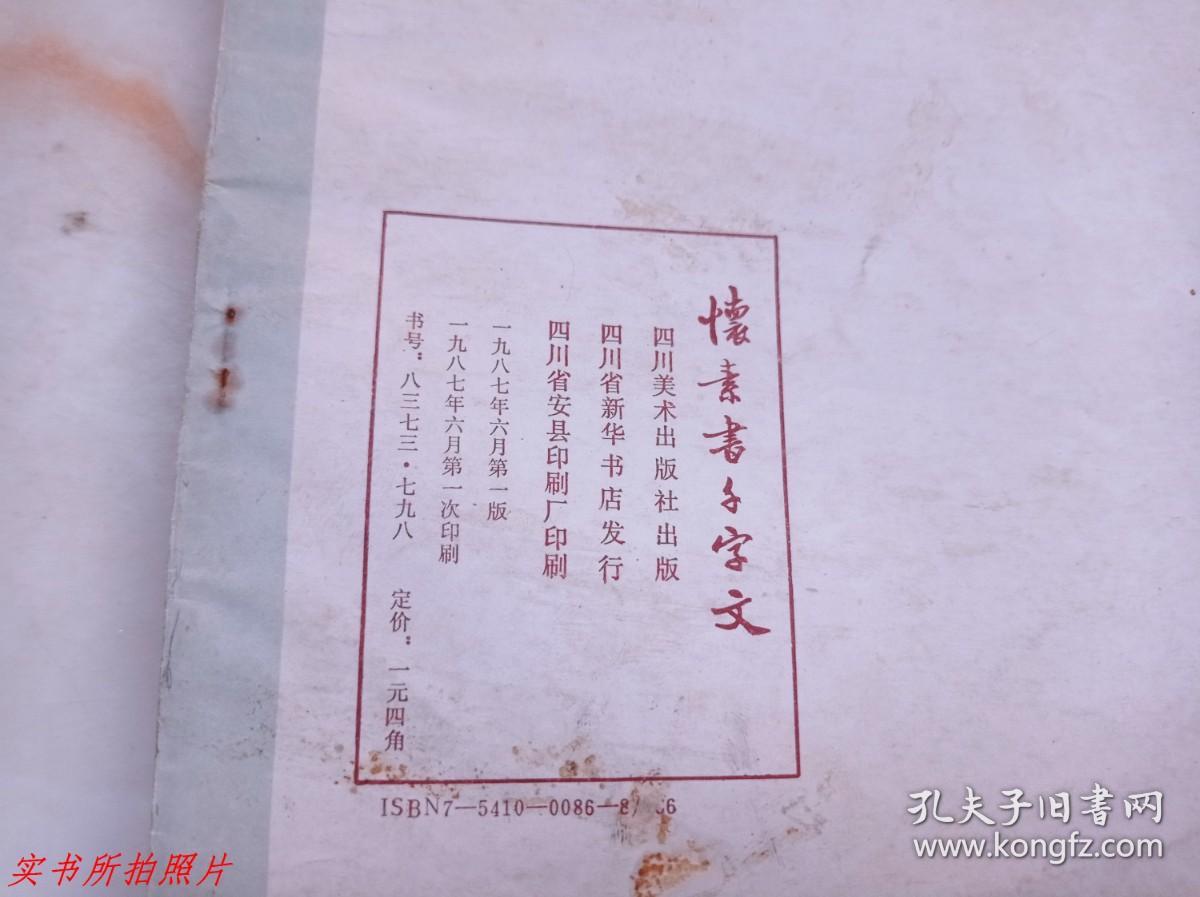 懷素書千字文
四川美术出版社出版
四川省新华书店发行
四川省安县印刷厂印刷
一九八七年六月第一版
一九八七年六月第一次印刷
书号：八三七三·七九八 定价：一元四角
ISBN7—5410—0086—8/ 6
实书所拍照片
孔夫子旧书网
www.kongfz.com